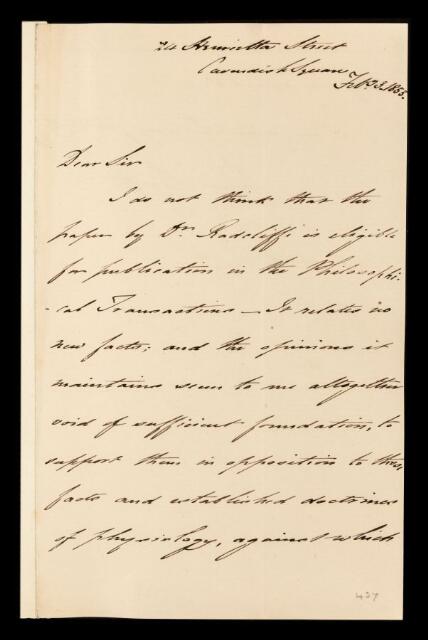 24 Henrietta Street
Cavendish Square
Feb. 23. 1855.
Dear Sir
I do not think that the
paper by Dr. Radcliffe is eligible
for publication in the Philosophi-
-cal Transactions — It relates no
new facts; and the opinions it
maintains seem to me altogether
void of sufficient foundation, to
support them in opposition to those
facts and established doctrines
of physiology, against which
437